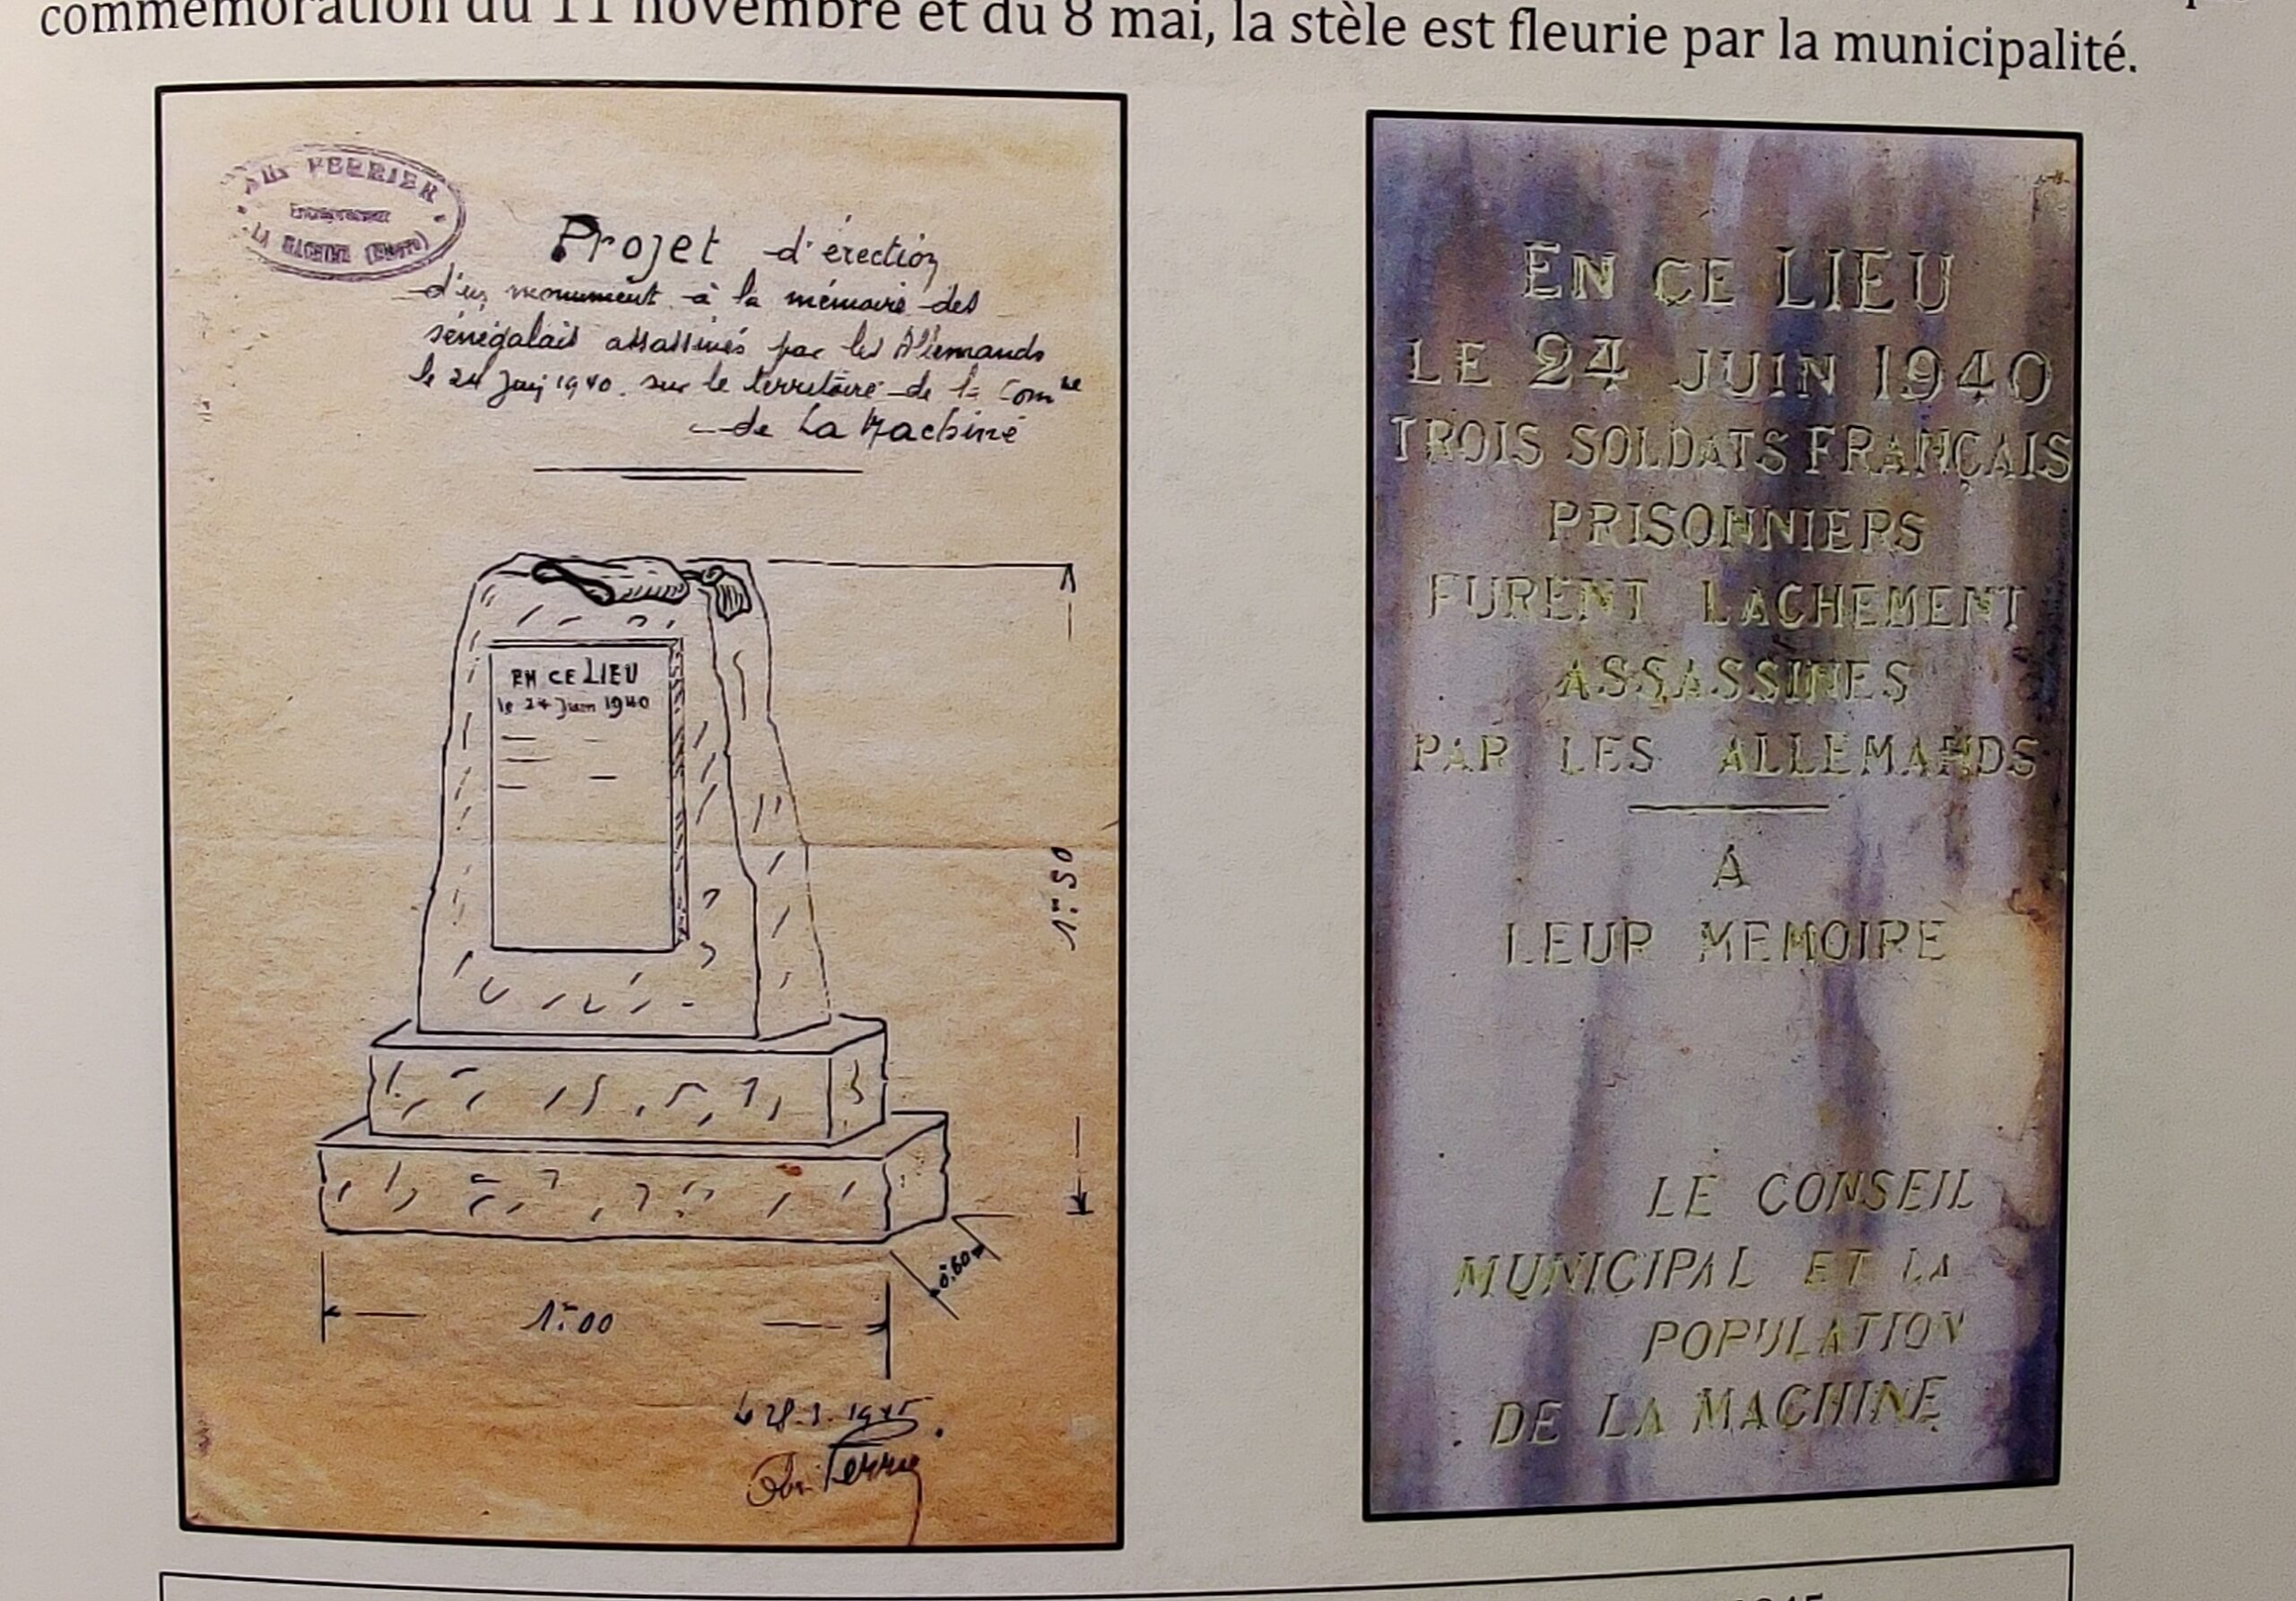 commémoration du 11 novembre et du 8 mai, la stèle est fleurie par la municipalité.
FERRIER
Entrepreneur
LA MACHINE (Nièvre)
Projet d'érection
d'un monument à la mémoire des
sénégalais assassinés par les Allemands
le 24 Juin 1940. sur le territoire de la Comne
de La Machine
EN CE LIEU
le 24 Juin 1940
1m50
0m,60
1m00
1945
EN CE LIEU
LE 24 JUIN 1940
TROIS SOLDATS FRANÇAIS
PRISONNIERS
FURENT LACHEMENT
ASSASSINES
PAR LES ALLEMANDS
A
LEUR MEMOIRE
LE CONSEIL
MUNICIPAL ET LA
POPULATION
DE LA MACHINE